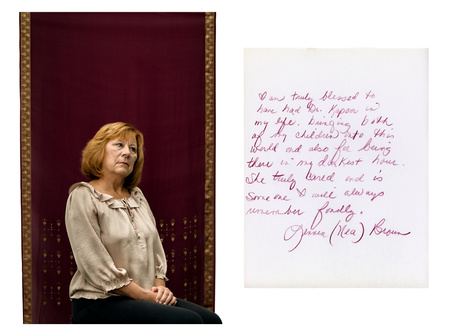 I am truly blessed to
have had Dr. Kopon in
my life. Bringing both
of my children into this
world and also for being
there in my darkest hour.
She truly cared and is
someone I will always
remember fondly.
(Nea) Brown